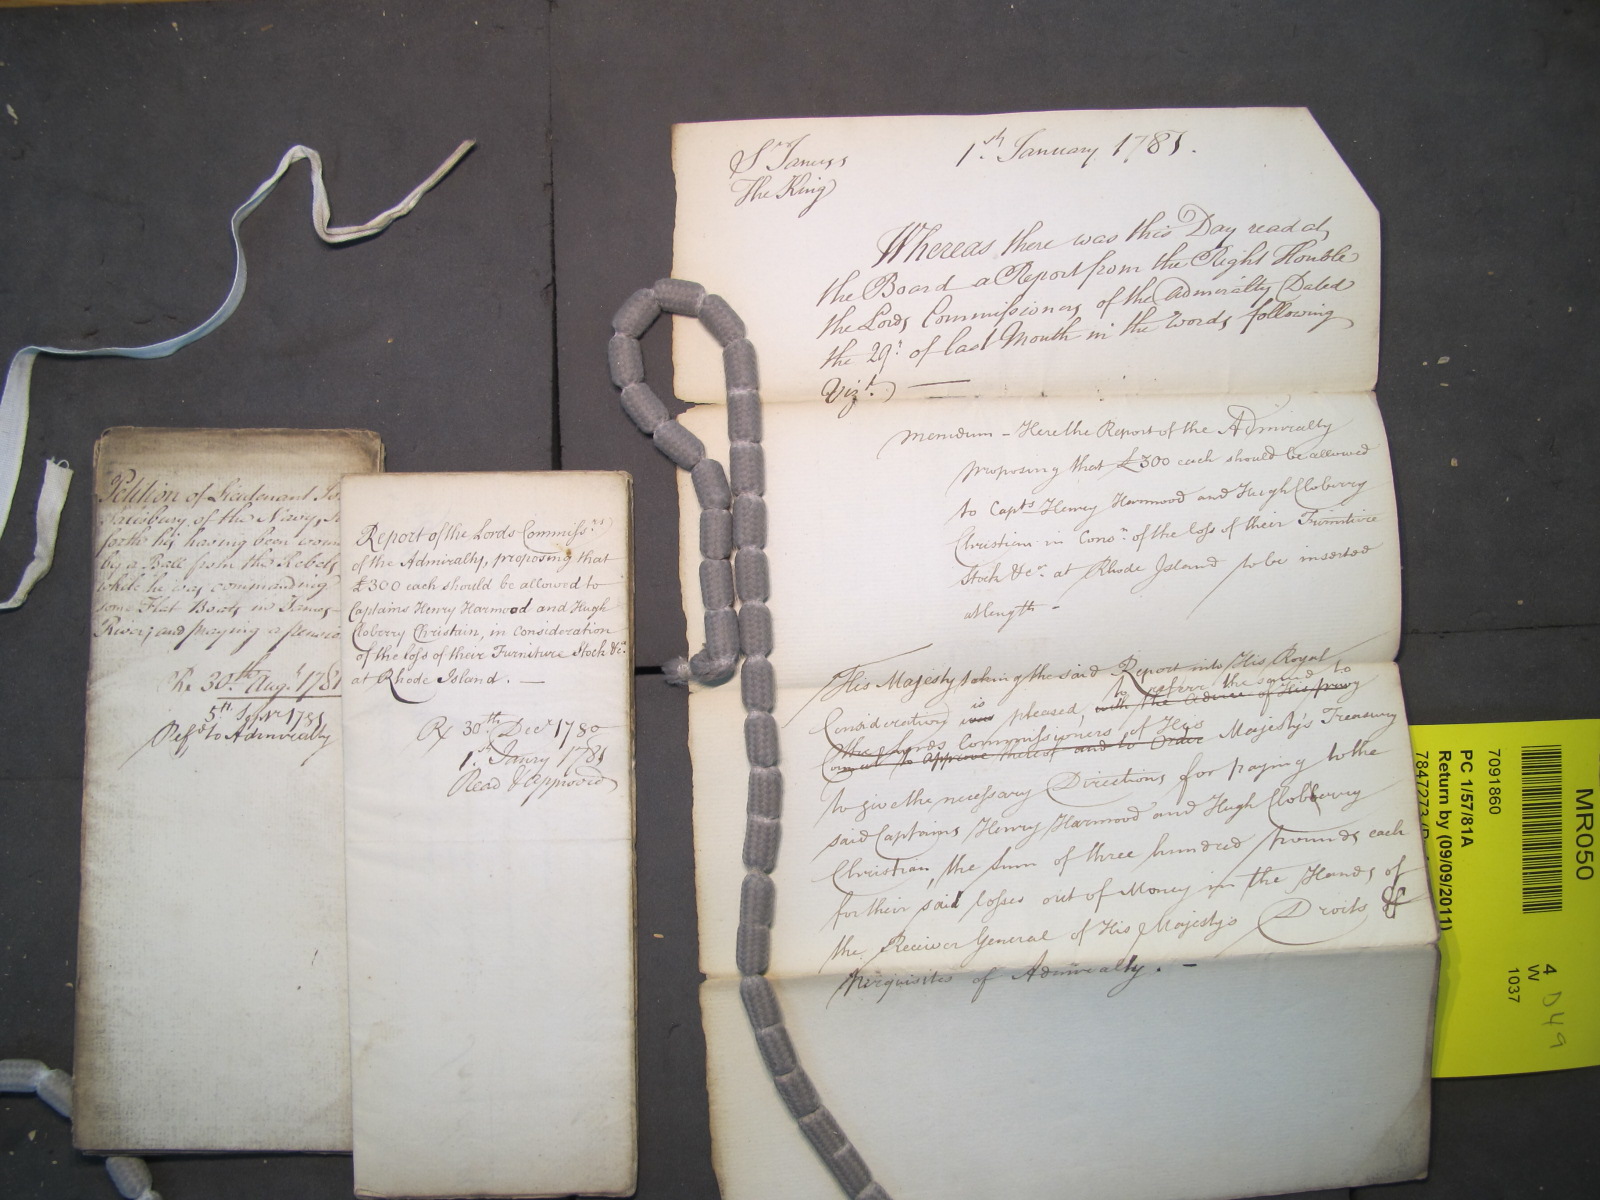 Petition of Lieutenant Jo
Salisbury of the Navy, S
forth his having been woun
by a Ball from the Rebels
while he was commanding
some Flat Boats in James
River; and praying a pensio
Rx 30.th Aug.t 1781
5th Sepr 1781
Refd to Admiralty
Report of the Lords Commissrs
of the Admiralty, proposing that
£300 each should be allowed to
Captains Henry Harmood and Hugh
Cloberry Christain, in consideration
of the loss of their Furniture Stock &ca
at Rhode Island. —
Rx 30th Decr 1780
1.st Janry 1781
Read & approved
St James's
1.st January 1781.
The King
Whereas there was this Day read at
the Board a Report from the Right Honble
the Lords Commissioners of the Admiralty Dated
the 29.t of last Month in the words following
Vizt. —
Memdum – Here the Report of the Admiralty
proposing that £300 each should be allowed
to Capts Henry Harmood and Hugh Cloberry
Christian in Conson of the loss of their Furniture
Stock &ca at Rhode Island to be inserted
at length –
His Majesty taking the said Report into His Royal
Consideration was is pleased, with the Advice of His privy to referr the same to
Council to approve thereof and to Order the Lords Commissioners of His Majesty's Treasury
to give the necessary Directions for paying to the
said Captains Henry Harmood and Hugh Clobberry
Christian, the Sum of three hundred pounds each
for their said losses out of Money in the Hands of
the Receiver General of His Majesty's Droits &
perquisites of Admiralty. –
MR050
7091860
PC 1/57/81A
Return by (09/09/2011)
4
W
1037
D49